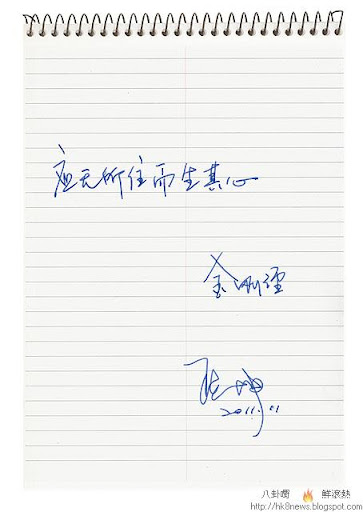 应无所住而生其心
金刚经
2011.11
八卦嘈 鮮滾熱
http://hk8news.blogspot.com